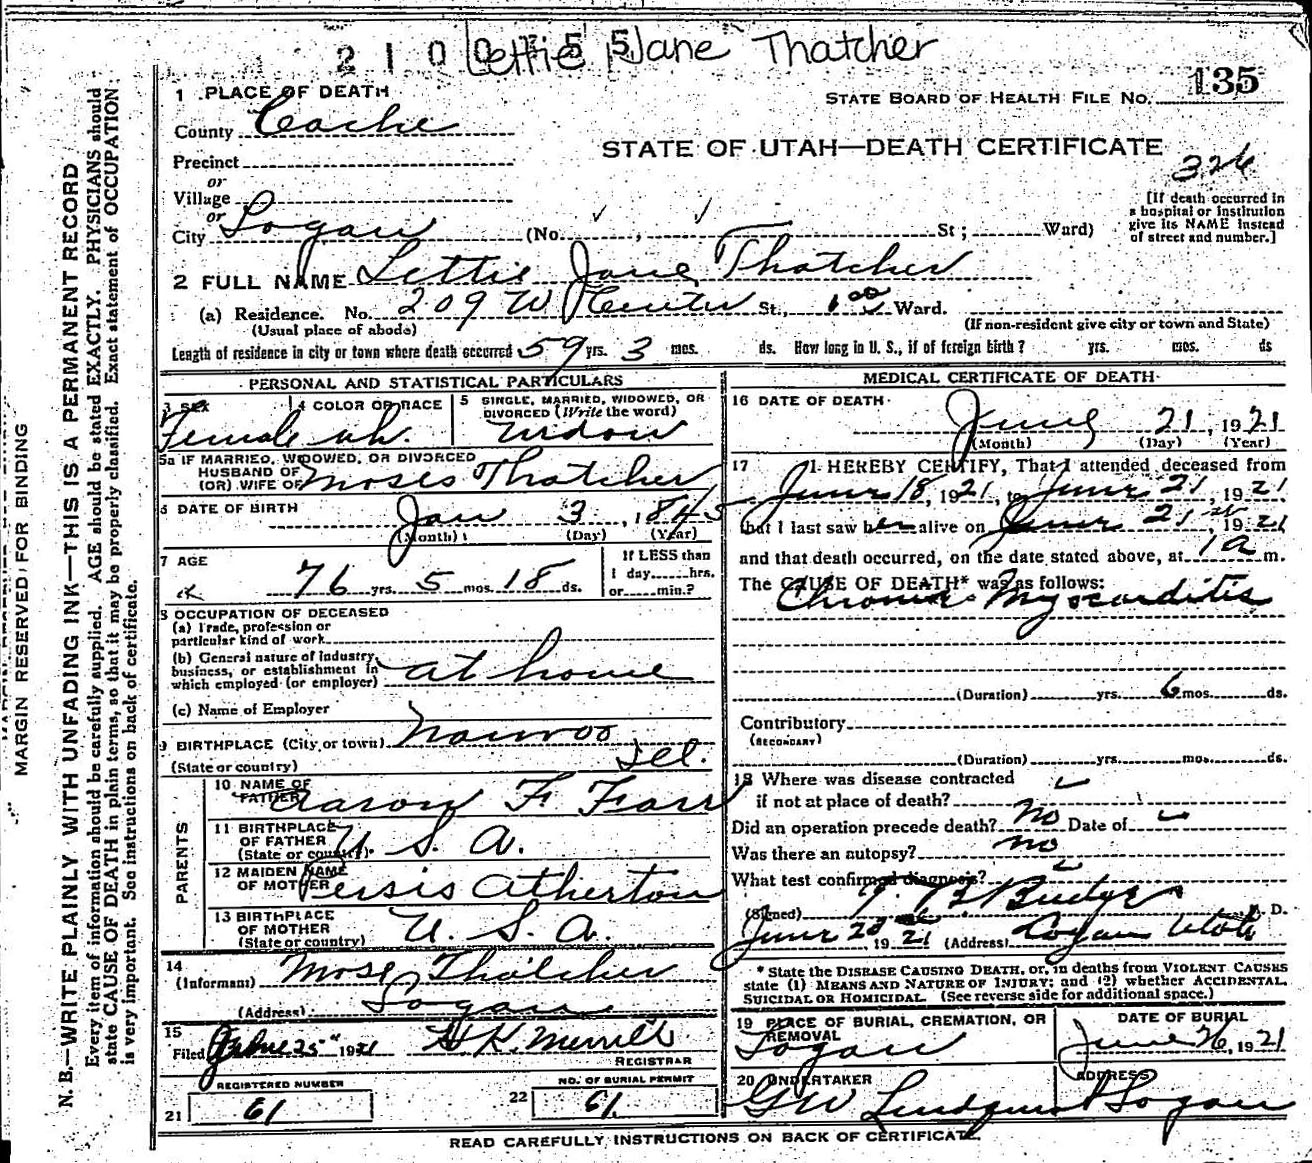 2 1 0 0 5 5 Lettie Jane Thatcher
1 PLACE OF DEATH
STATE BOARD OF HEALTH FILE NO. 135
County Cache
STATE OF UTAH—DEATH CERTIFICATE
326
Precinct
or
Village
or
City Logan (No. , St; Ward)
[If death occurred in
a hospital or institution
give its NAME instead
of street and number.]
2 FULL NAME Lettie Jane Thatcher
(a) Residence. No. 209 W Center St., Ward.
(Usual place of abode)
(If non-resident give city or town and State)
Length of residence in city or town where death occurred 59 yrs. 3 mos. ds. How long in U. S., if of foreign birth? yrs. mos. ds
PERSONAL AND STATISTICAL PARTICULARS
3 SEX
Female
4 COLOR OR RACE
wh.
5 SINGLE, MARRIED, WIDOWED, OR
DIVORCED (Write the word)
Widow
5a IF MARRIED, WIDOWED, OR DIVORCED
HUSBAND OF
(OR) WIFE OF Moses Thatcher
6 DATE OF BIRTH Jan 3, 1845
(Month) (Day) (Year)
7 AGE
76 yrs. 5 mos. 18 ds.
If LESS than
1 day......hrs.
or......min.?
8 OCCUPATION OF DECEASED
(a) Trade, profession or
particular kind of work
(b) General nature of industry,
business, or establishment in
which employed (or employer) at home
(c) Name of Employer
9 BIRTHPLACE (City or town) Nauvoo
(State or country) Ill.
PARENTS
10 NAME OF
FATHER Aaron F Farr
11 BIRTHPLACE
OF FATHER
(State or country) U. S. A.
12 MAIDEN NAME
OF MOTHER Persis Atherton
13 BIRTHPLACE
OF MOTHER
(State or country) U. S. A.
14
(Informant) Moses Thatcher
(Address) Logan
15
Filed June 25" 1921 H K. Merrill
REGISTRAR
REGISTERED NUMBER
21 61
NO. OF BURIAL PERMIT
22 61
MEDICAL CERTIFICATE OF DEATH
16 DATE OF DEATH
June 21, 1921
(Month) (Day) (Year)
17 I HEREBY CERTIFY, That I attended deceased from
June 18, 1921, to June 21, 1921
that I last saw her alive on June 21st 1921
and that death occurred, on the date stated above, at 1 a m.
The CAUSE OF DEATH* was as follows:
Chronic Myocarditis
(Duration) yrs. 6 mos. ds.
Contributory
(SECONDARY)
(Duration) yrs. mos. ds.
18 Where was disease contracted
if not at place of death?
Did an operation precede death? no Date of
Was there an autopsy? no
What test confirmed diagnosis?
(Signed) T. B. Budge M. D.
June 1921 (Address) Logan Utah
* State the DISEASE CAUSING DEATH, or, in deaths from VIOLENT CAUSES
state (1) MEANS AND NATURE OF INJURY; and (2) whether ACCIDENTAL,
SUICIDAL OR HOMICIDAL. (See reverse side for additional space.)
19 PLACE OF BURIAL, CREMATION, OR
REMOVAL
Logan
DATE OF BURIAL
June 26, 1921
20 UNDERTAKER
G W Lindquist
ADDRESS
Logan
READ CAREFULLY, INSTRUCTIONS ON BACK OF CERTIFICATE.
MARGIN RESERVED FOR BINDING
N. B.—WRITE PLAINLY WITH UNFADING INK—THIS IS A PERMANENT RECORD
Every item of information should be carefully supplied. AGE should be stated EXACTLY. PHYSICIANS should
state CAUSE OF DEATH in plain terms, so that it may be properly classified. Exact statement of OCCUPATION
is very important. See instructions on back of certificate.